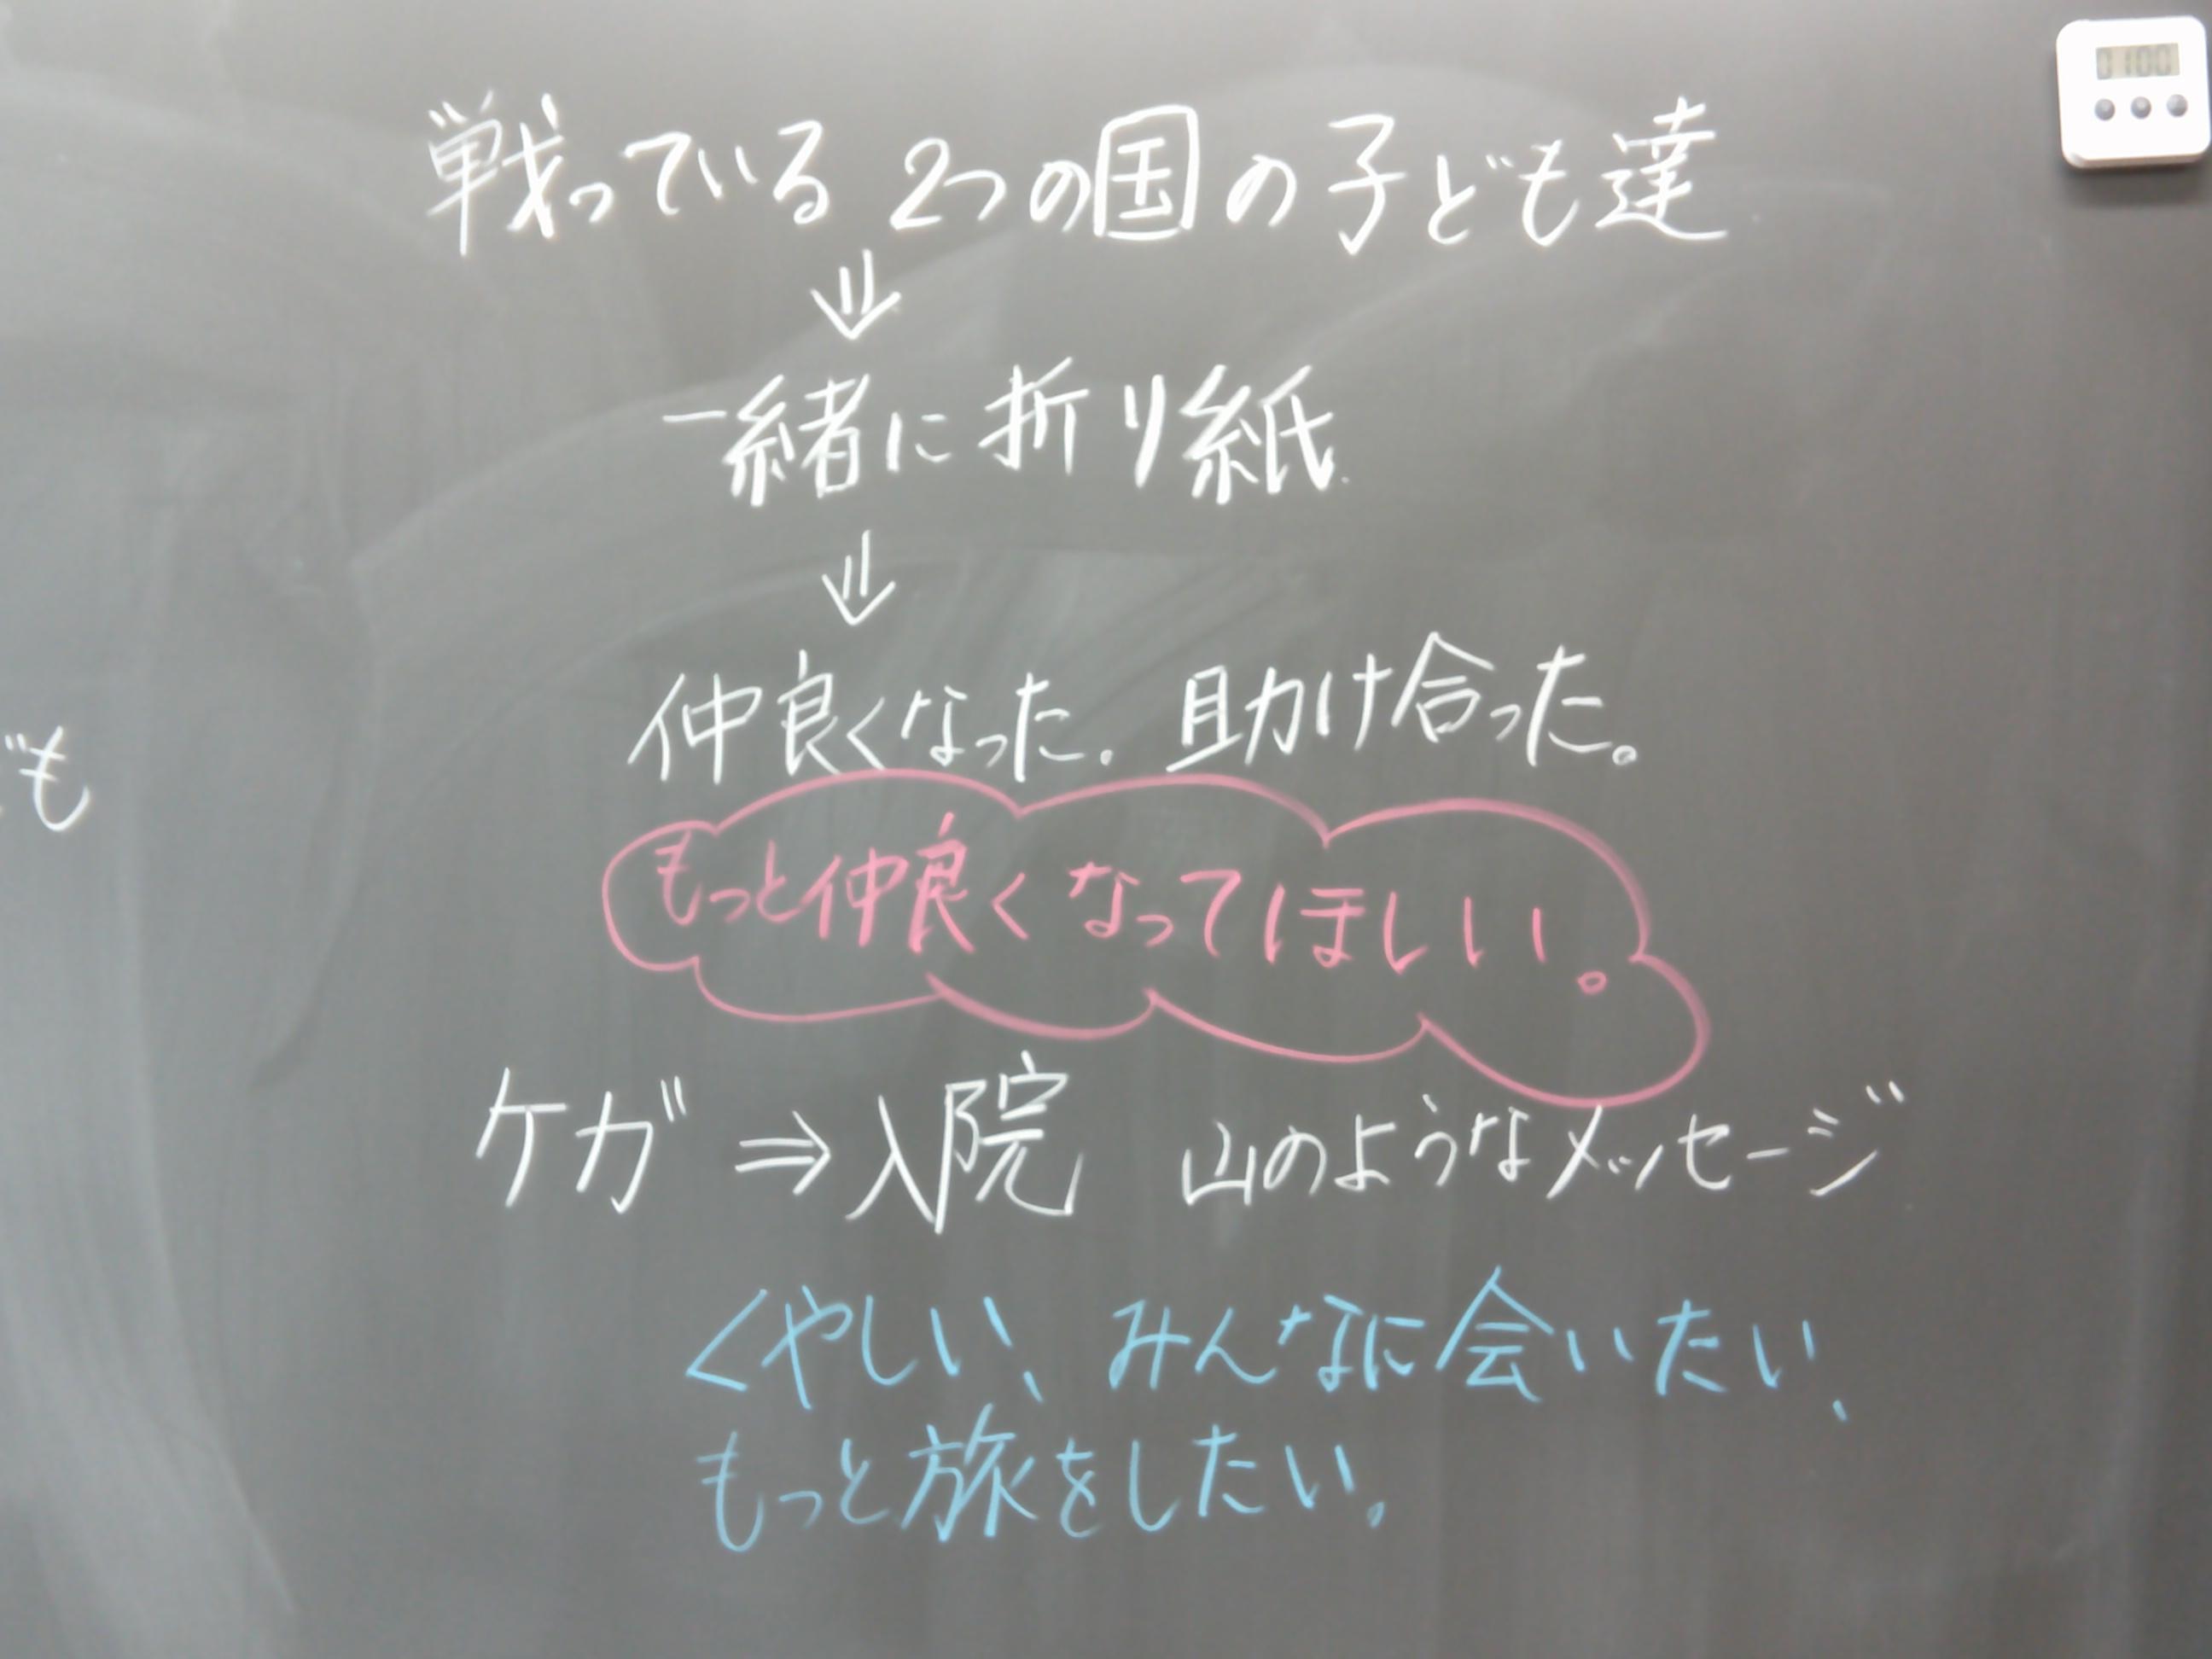 戦っている 2つの国の子ども達
⇓
一緒に折り紙
⇓
仲良くなった。助け合った。
も
もっと仲良くなってほしい。
ケガ ⇒ 入院 山のようなメッセージ
くやしい、みんなに会いたい、
もっと旅をしたい。